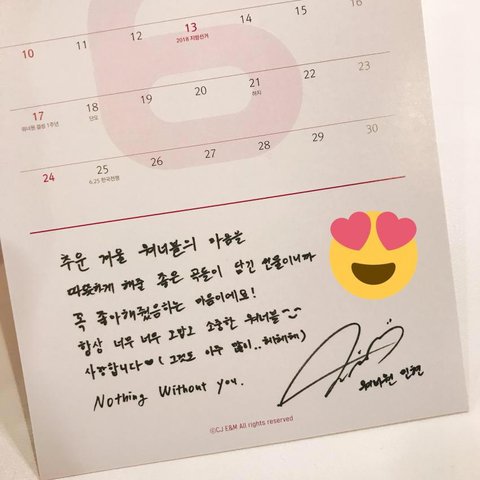 10 11 12 13 14 15 16
2018 지방선거
17 18 19 20 21 22 23
워너원 결성 1주년 단오 하지
24 25 26 27 28 29 30
6.25 한국전쟁
추운 겨울 워너블의 마음을
따뜻하게 해줄 좋은 곡들이 담긴 선물이니까
꼭 좋아해줬음하는 마음이에요!
항상 너무 너무 고맙고 소중한 워너블
사랑합니다♥ (그것도 아주 많이..헤헤헤)
Nothing Without You.
워너원 민현
ⓒCJ E&M All rights reserved